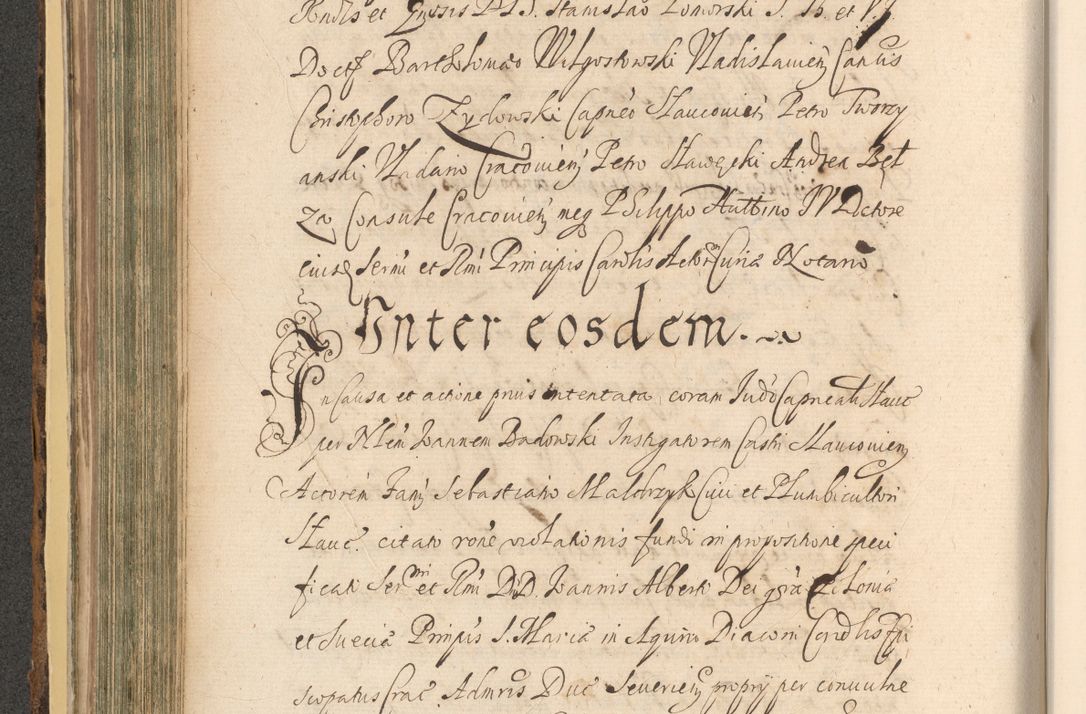 Rndis et Gnosis DD. Stanislao Lomorski S. Th. et V. J.
Doct Bartholomæo Wilgostowski Vladislavien Canus
Christophoro Zydowski Capneo Slaucovien Petro Tworzy
anski Vladario Cracovien Petro Slawęski Andrea Bęł
za Consule Cracovien neq Philippo Huttino JVDctore
eiusq Sermi et Rmi Principis Cardlis Actor Curiæ Notario
Inter eosdem.
In Causa et actione prius intentata coram Judo Capneali Slauc
per Nlem Joannem Badowski Instigatorem Castri Slaucovien
Actorem Famm Sebastiano Malchrzyk Civi et Plumbicultori
Slauc. citato rone violationis fundi in propositione speci
ficati Sermi et Rmi DD. Joannis Alberti Dei gra Poloniæ
et Sueciæ Prinpis S. Mariæ in Aquiro Diaconi Cardlis Epi
scopatus Crac Admris Duc Severien proprij per convulne